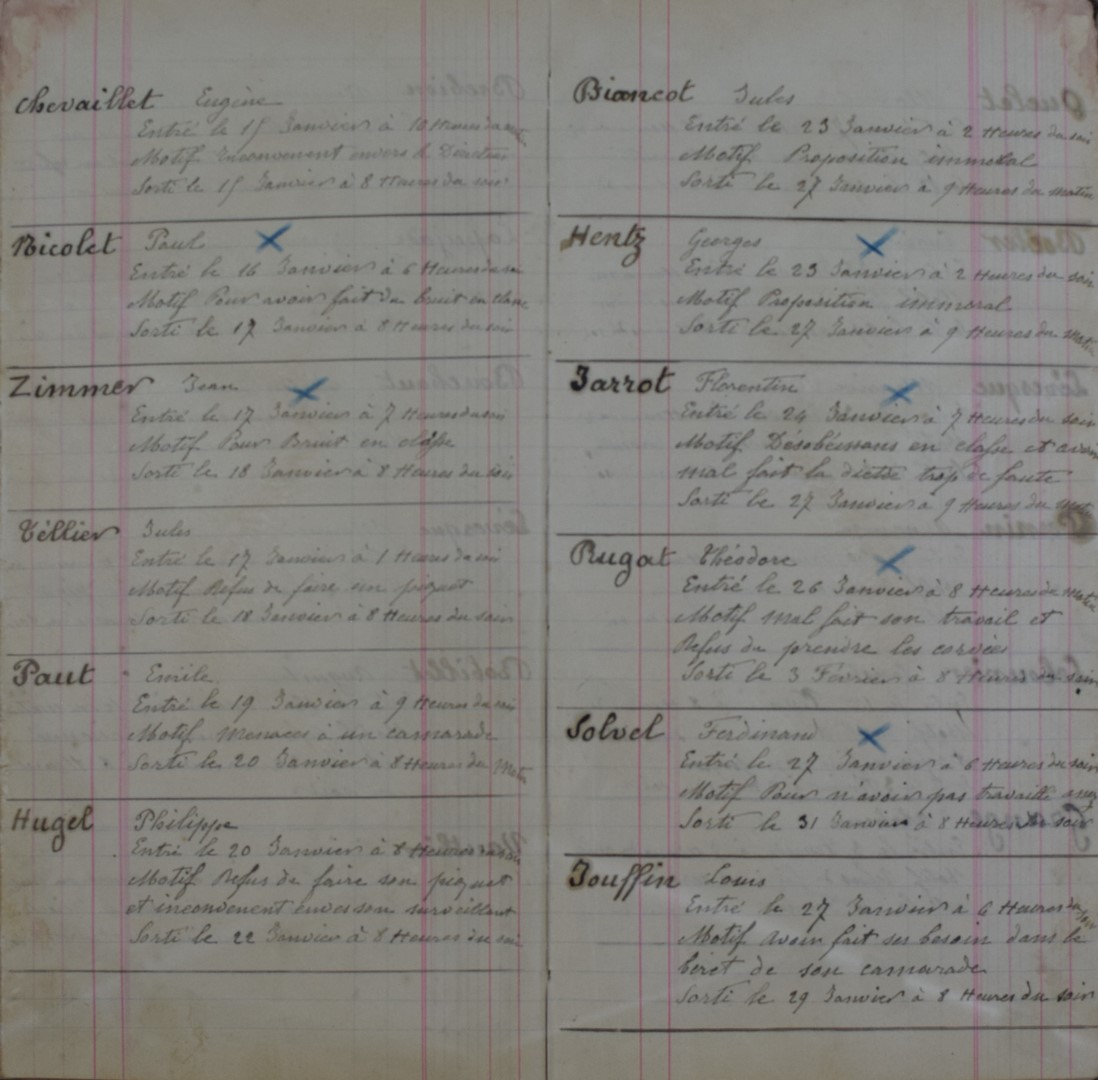 Chevaillet Eugène
Entré le 15 Janvier à 10 Heures du
Motif Inconvenent envers le Directeur
Sorti le 15 Janvier à 8 Heures du soir
Nicolet Paul
Entré le 16 Janvier à 6 Heures du soir
Motif Pour avoir fait du bruit en classe
Sorti le 17 Janvier à 8 Heures du soir
Zimmer Jean
Entré le 17 Janvier à 7 Heures du soir
Motif Pour Bruit en classe
Sorti le 18 Janvier à 8 Heures du soir
Téllier Jules
Entré le 17 Janvier à 1 Heures du soir
Motif Refus de faire un piquet
Sorti le 18 Janvier à 8 Heures du soir
Paut Emile
Entré le 19 Janvier à 9 Heures du soir
Motif Menaces à un camarade
Sorti le 20 Janvier à 8 Heures du Matin
Hugel Philippe
Entré le 20 Janvier à 8 Heures du
Motif Refus de faire son piquet
et inconvenent envers son surveillant
Sorti le 22 Janvier à 8 Heures du soir
Biancot Jules
Entré le 23 Janvier à 2 Heures du soir
Motif Proposition immoral
Sorti le 27 Janvier à 9 Heures du matin
Hentz Georges
Entré le 23 Janvier à 2 Heures du soir
Motif Proposition immoral
Sorti le 27 Janvier à 9 Heures du Matin
Jarrot Florentin
Entré le 24 Janvier à 7 Heures du soir
Motif Désobéissans en classe et avoir
mal fait la dictée trop de faute
Sorti le 27 Janvier à 9 Heures du Mat
Rugat Théodore
Entré le 26 Janvier à 8 Heures du Matin
Motif mal fait son travail et
Refus du prendre les corvées
Sorti le 3 Février à 8 Heures du soir
Solvel Ferdinand
Entré le 27 Janvier à 6 Heures du soir
Motif Pour n'avoir pas travaillé assez
Sorti le 31 Janvier à 8 Heures du soir
Jouffin Louis
Entré le 27 Janvier à 6 Heures du soir
Motif avoir fait ses besoin dans le
béret de son camarade
Sorti le 29 Janvier à 8 Heures du soir